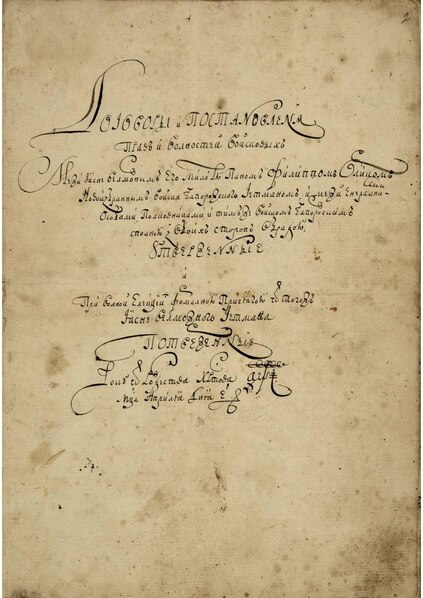 2
Договоры и Постановлѐня
Правъ и волностей войсковыхъ
Межи Ясне велможнымъ Его Милостю Паномъ Филиппомъ Орликомъ
Новообраннымъ войска Запорожского Гетманомъ, и межи Енералними
Особами Полковниками и тимъже войскомъ Запорожскимъ
сполною з обоихъ сторонъ обрадою
Утверженные
и
При волной Елекціи формалною Присягою ѿ тогожъ
Ясне велможного Гетмана
Потверженные
Року ѿ Рождества Христова аѱі
мца Априля дня е҃